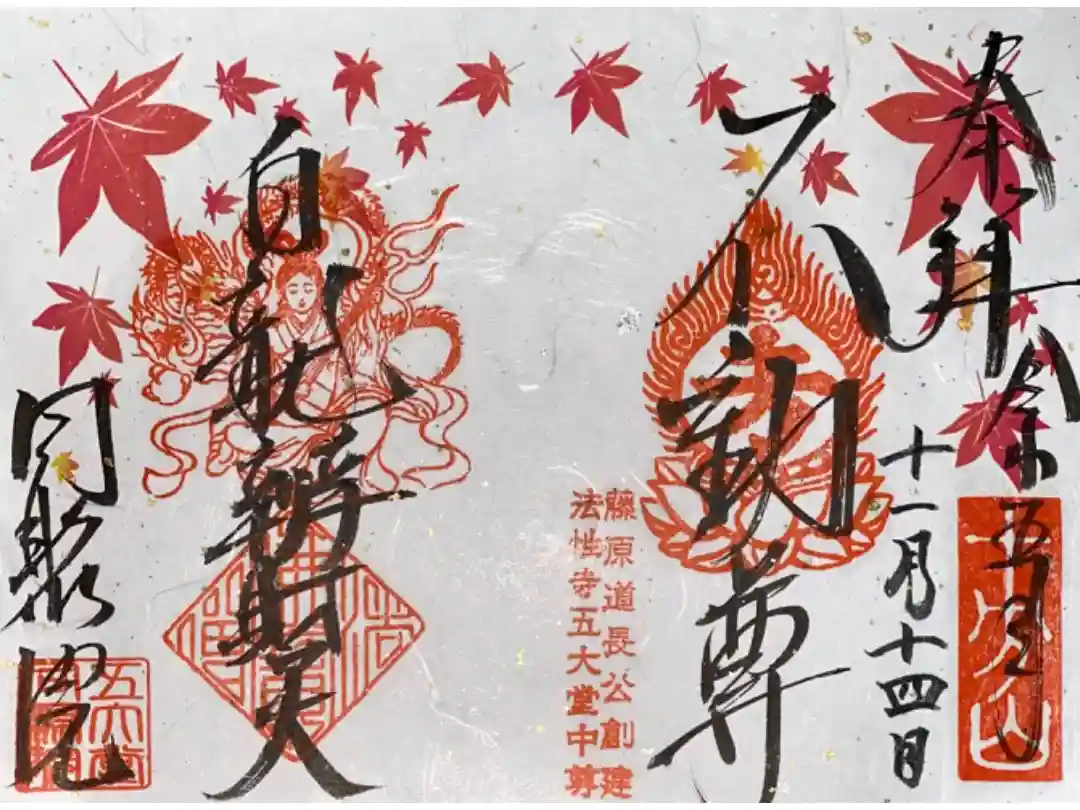 奉拝
令和五年
十一月十四日
不動尊
藤原道長公創建
法性寺五大堂中尊
白蛇辨財天
同聚院
五大堂